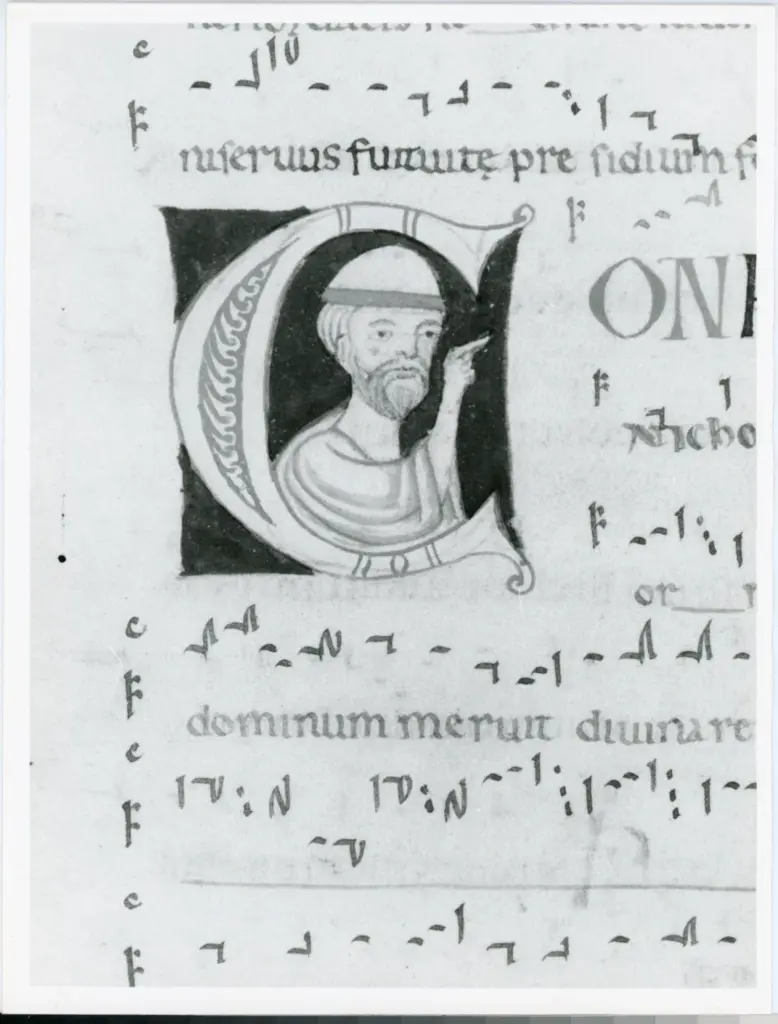 c
F
niseruus fuit uitę pre sidium
F
CON
F
Nicho
F
or
c
F
dominum meruit diuina re
c
F
c
F